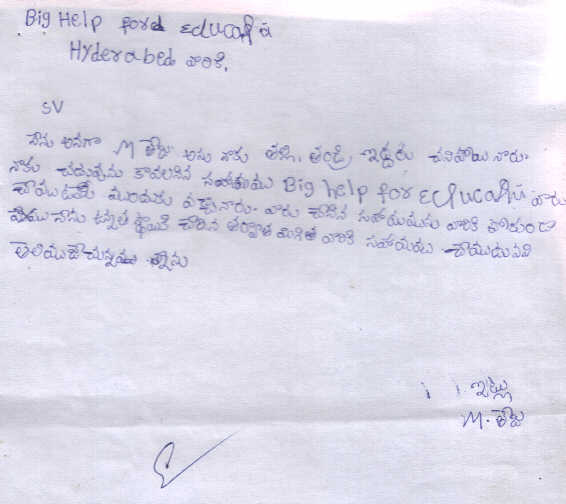 Big Help ford Educatiā
Hyderabed వారికి,
SV
నేను అనగా M తేజు అను నాకు తల్లి, తండ్రి ఇద్దరు చనిపోయినారు.
నాకు చదువును కావలసిన సహాయము Big help for Educatiā వారు
చేయుటకు ముందుకు వచ్చినారు. వారు చేసిన సహాయమును వారికి
నేను ఉన్నత స్థాయికి చేరిన తరువాత మిగిత వారికి సహాయము చేయుదునని
తెలియజేయుచున్నాను
ఇట్లు
M. తేజు